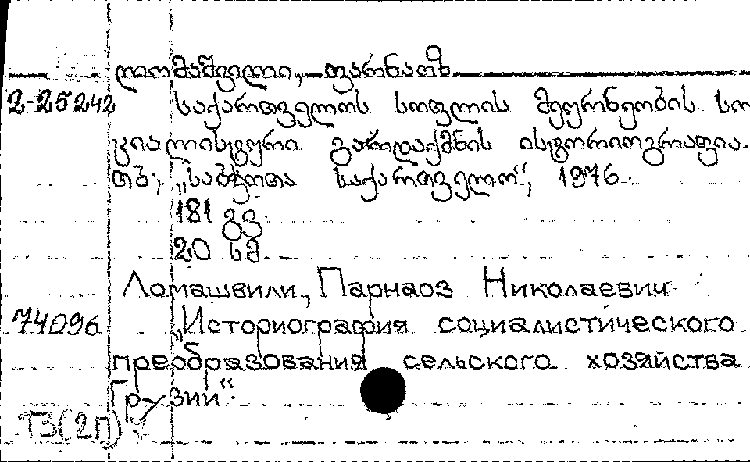 ლომაშვილი, ფარნაოზ
2-25242 საქართველოს სოფლის მეურნეობის სო
ციალისტური გარდაქმნის ისტორიოგრაფია.
თბ., „საბჭოთა საქართველო“, 1976.
181 გვ
20 სმ
Ломашвили, Парнаоз Николаевич
74096 „Историография социалистического
преобразования сельского хозяйства
Грузии“.
ТЗ(2Г)